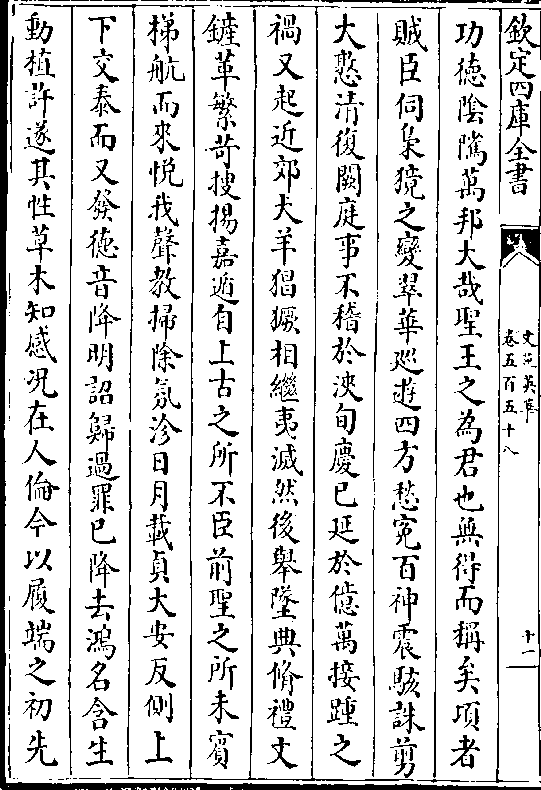 欽定四庫全書
文苑英華
卷五百五十八
十一
功德陰隲萬邦大哉聖王之為君也無得而稱矣項者
賊臣伺梟獍之變翠華廵遊四方愁寃百神震駭誅剪
大憝清復闕庭事不稽於浹旬慶已延於億萬接踵之
禍又起近郊犬羊猖獗相繼夷滅然後舉墜典脩禮文
鏟革繁苛搜揚嘉遁自上古之所不臣前聖之所未賓
梯航而來悅我聲教掃除氛沴日月載貞大安反側上
下交泰而又發德音降明詔歸過罪已降去鴻名含生
動植許遂其性草木知感况在人倫今以履端之初先